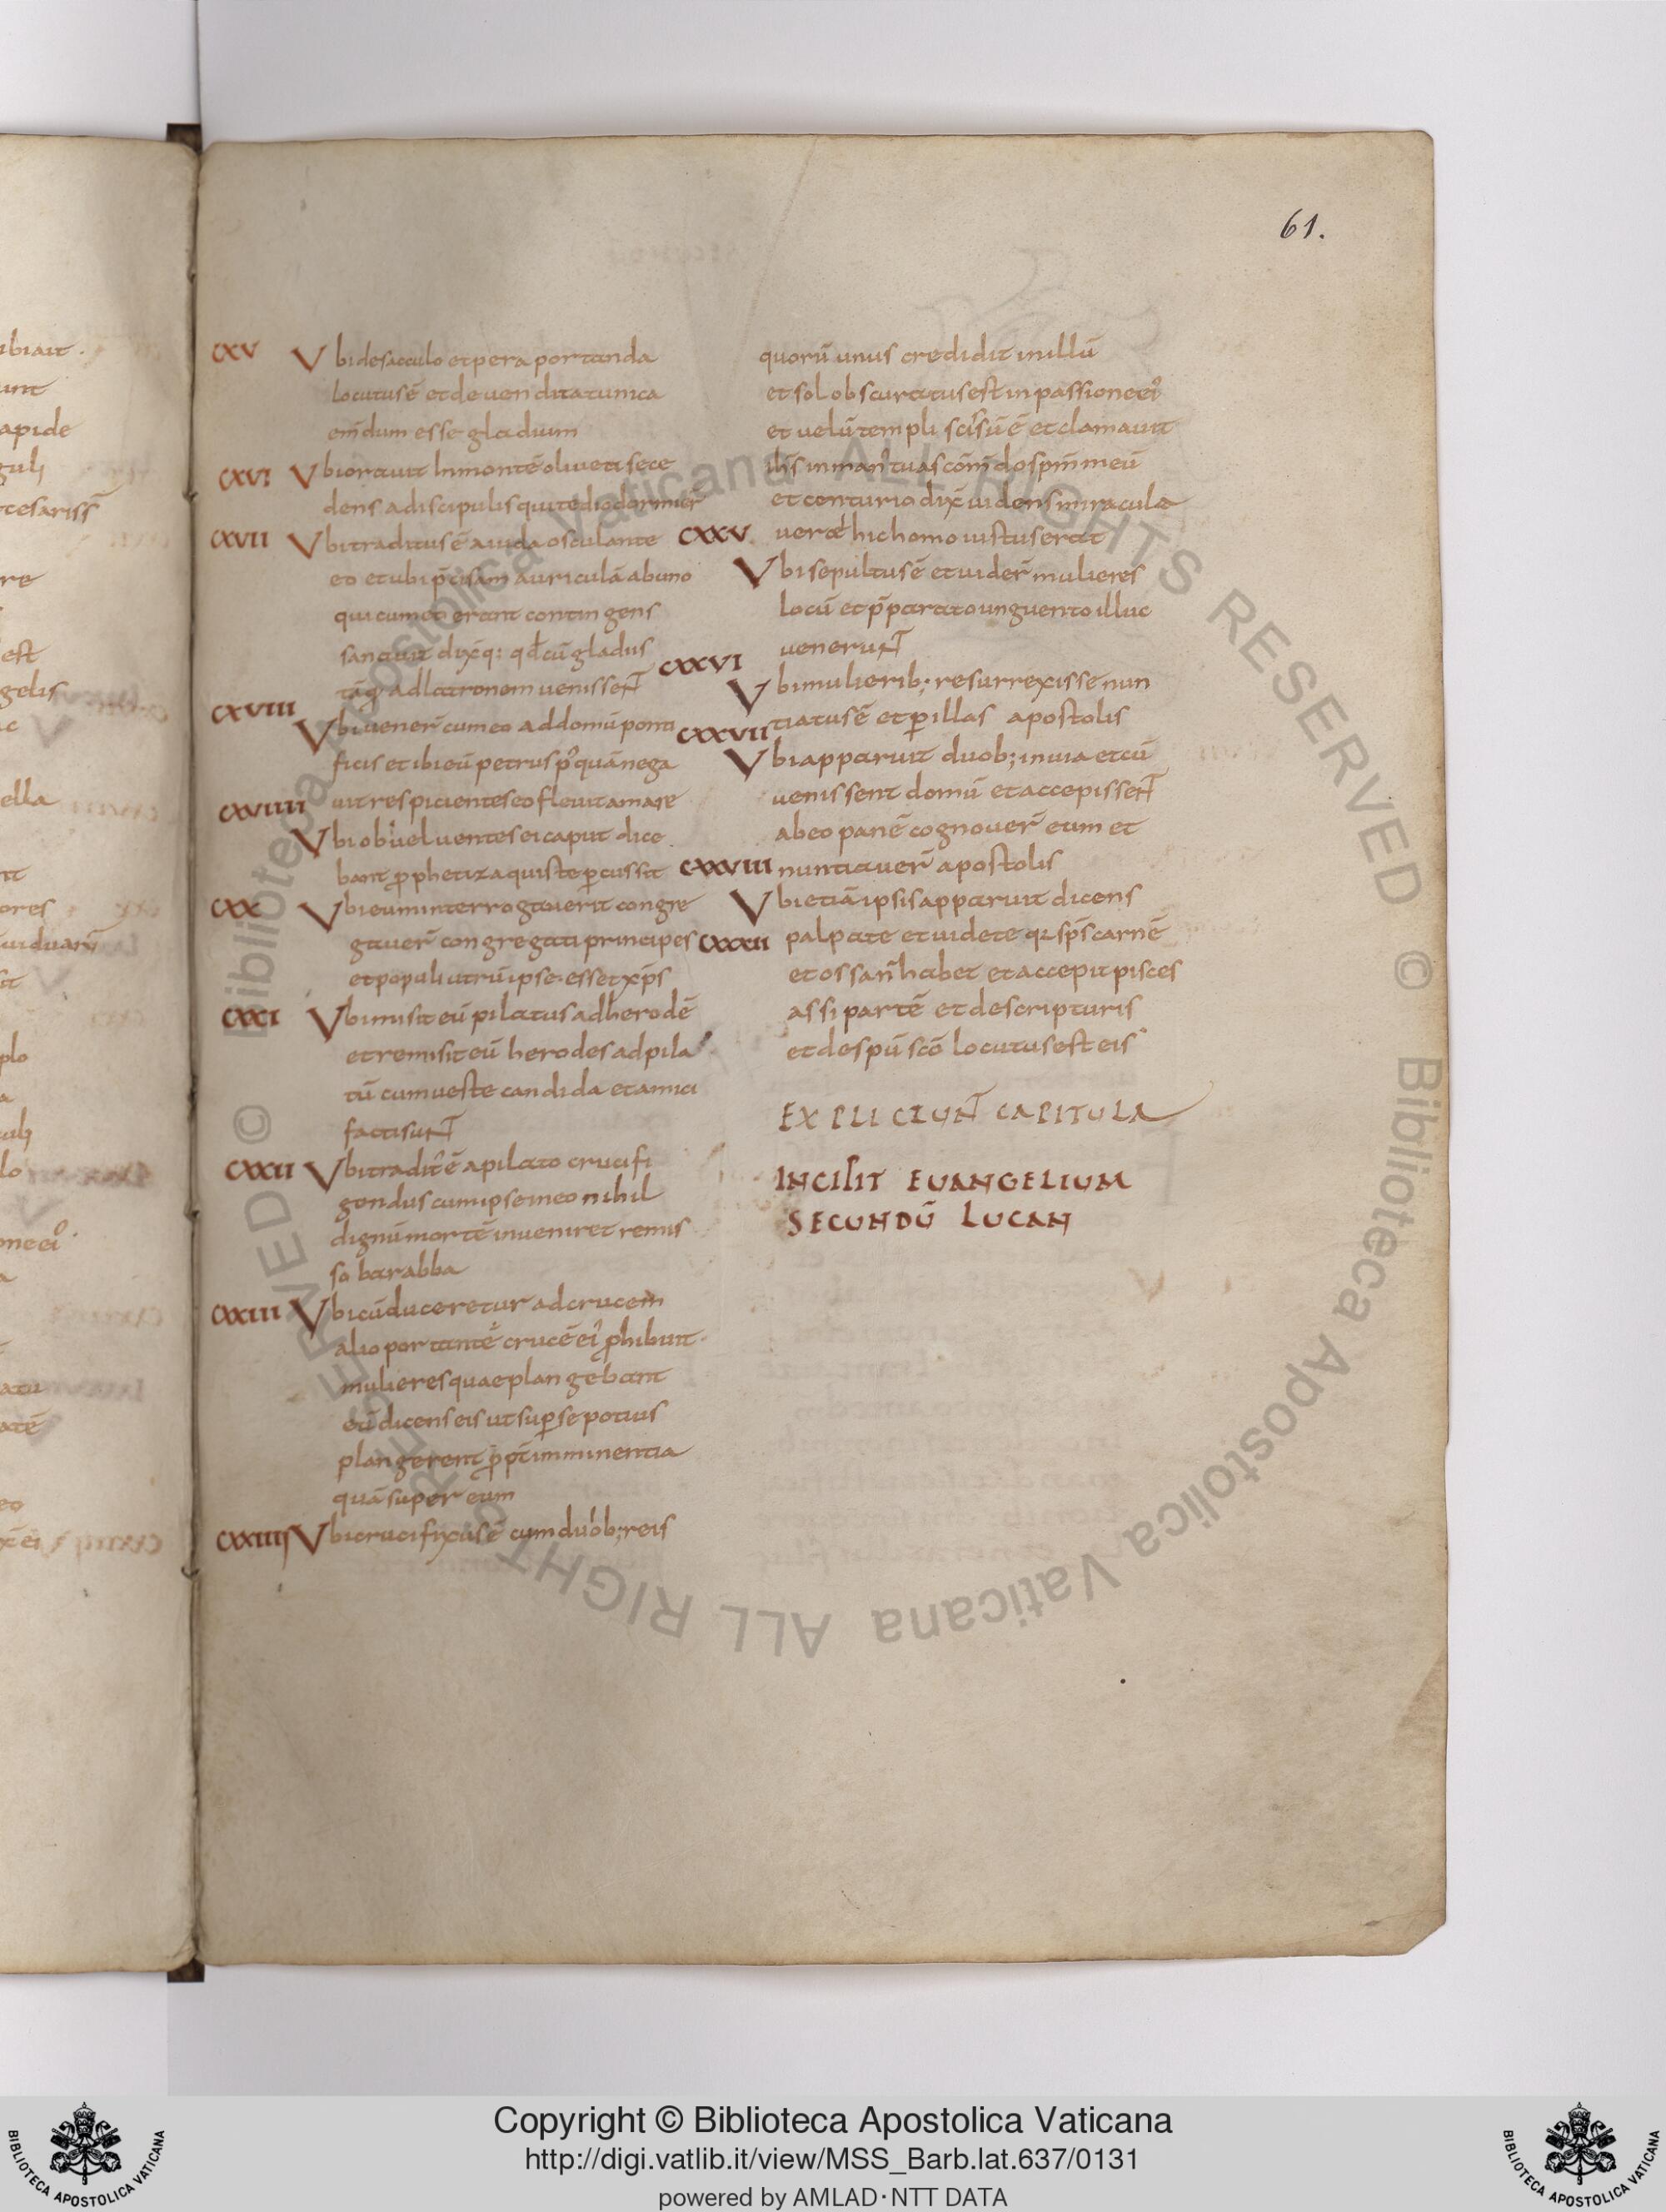 61.
CXV Vbi de sacculo et pera portanda
locutus ē et de uendita tunica
em̄dum esse gladium
CXVI Vbi orauit In montē oliueti sece
dens a discipulis qui tedio dormier̄
CXVII Vbi traditus ē a iuda osculante
eo et ubi p̄cisam auriculā ab uno
qui cum eo erant contingens
sanauit dixq: qđ cū gladiis
tāq̄ ad latronem uenisseNT
CXVIII Vbi uener̄ cum eo ad domū ponti
ficis et ibi eū petrus p̉quā nega
uit respiciente se o fleuit amare
CXVIIII Vbi ob uel uentes ei caput dice
bant p̱phetiza quis te p̱cussit
CXX Vbi eum interrogauerit congre
gauer̄ congregati principes
et populi utrū ipse esset xp̄s
CXXI Vbi misit eū pilatus ad herodē
et remisit eū herodes ad pila
tū cum ueste candida et amici
facti suNT
CXXII Vbi tradit' ē a pilato crucifi
gendus cum ipse in eo nihil
dignū mortē inueniret remis
so barabba
CXXIII Vbi cū duceretur ad crucem
alio portantē crucē ei' p̱hibuit
mulieres quae plangebant
eū dicens eis ut sup̱ se potius
plangerent p̱pt̄ imminentia
quā super eum
CXXIIII Vbi crucifixus ē cum duob; reis
quorū unus credidit in illū
et sol obscuratus est in passione ei'
et uelū templi scisū ē et clamauit
ih̄s in man' tuas cōm̄do sp̄m meū
et centurio dix̄ uidens miracula
uere hic homo iustus erat
CXXV Vbi sepultus ē et uider̄ mulieres
locū et p̄parato unguento illuc
veneruNT
CXXVI Vbi mulierib; resurrexisse nun
tiatus ē et p̱ illas apostolis
CXXVII Vbi apparuit duob; in uia et cū
uenissent domū et accepisseNT
ab eo panē cognouer̄ eum et
nuntiauer̄ apostolis
CXXVIII Vbi etiā ipsis apparuit dicens
CXXXII palpate et uidete q̄ sp̄s carnē
et ossa n̄ habet et accepit pisces
assi partē et de scripturis
et de sp̄u scō locutus est eis
EXPLICIUNT CAPITULA
INCIPIT EUANGELIUM
SECUNDŪ LUCAN
Copyright © Biblioteca Apostolica Vaticana
http://digi.vatlib.it/view/MSS_Barb.lat.637/0131
powered by AMLAD·NTT DATA
BIBLIOTECA APOSTOLICA VATICANA
BIBLIOTECA APOSTOLICA VATICANA
© Biblioteca Apostolica Vaticana ALL RIGHTS RESERVED
© Biblioteca Apostolica Vaticana ALL RIGHTS RESERVED